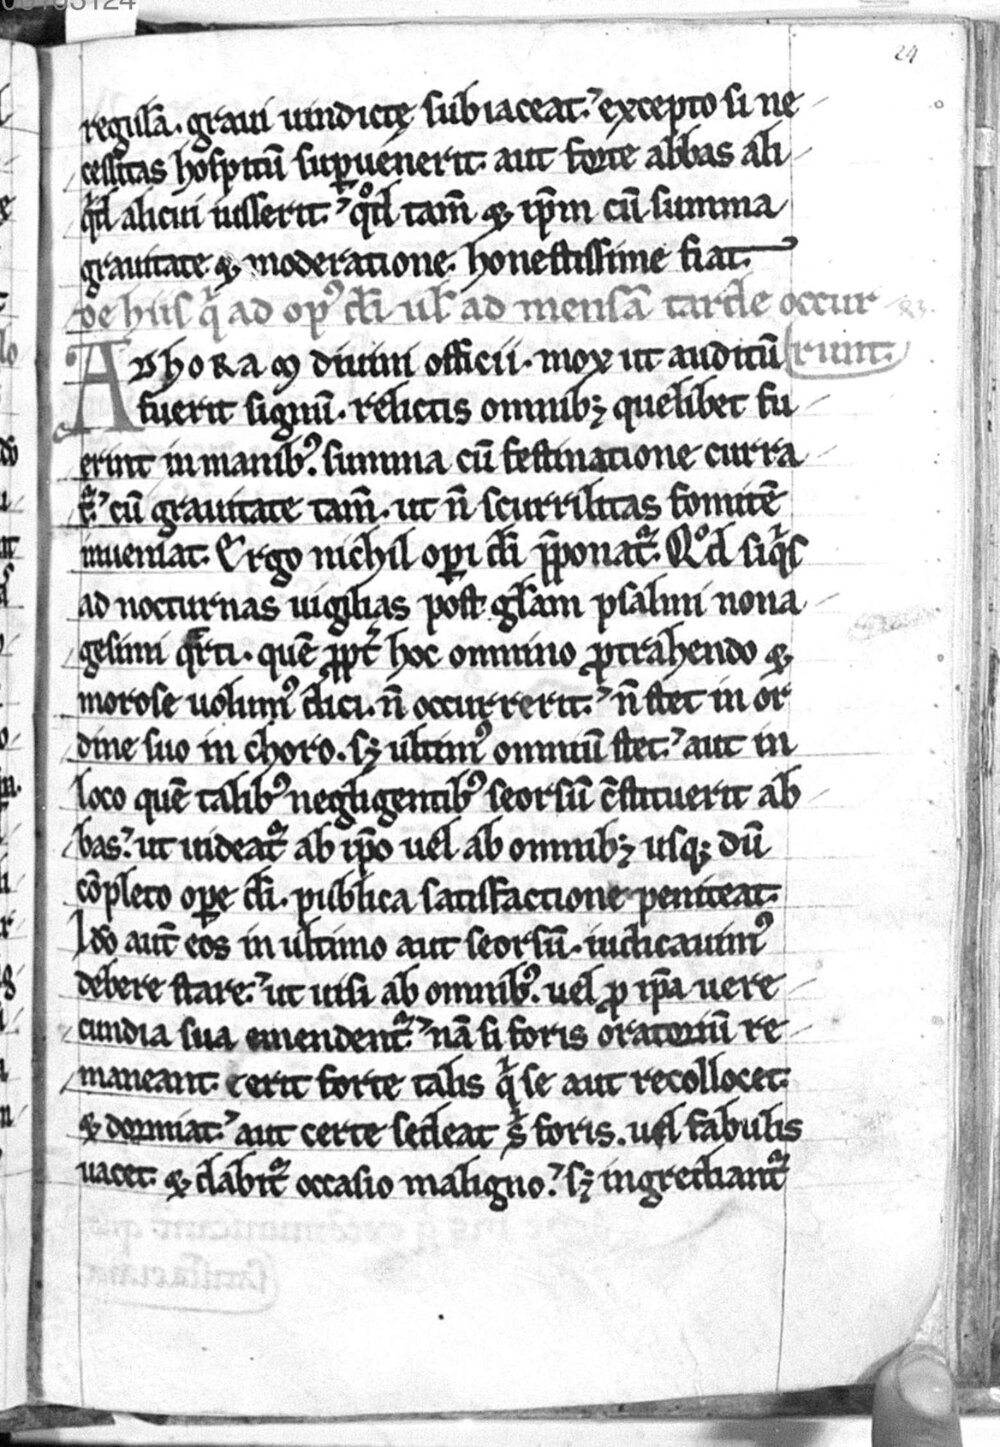 00103124
24
regulā. graui uindictę subiaceat. excepto si ne
cessitas hospitū supuenerit. aut forte abbas ali
qd alicui iusserit. qd tam̄ & ipm̄ cū summa
grauitate & moderatione. honestissime fiat.
De hiis q̇ ad op' dī ul' ad mensā tarde occur
runt.
AD hORA ꝫ diuini officii. mox ut auditū
fuerit signū. relictis omnibꝫ quelibet fu
erint in manib'. summa cū festinatione curra
t̄. cū grauitate tam̄. ut n̄ scurrilitas fomitē
inueniat. Ergo nichil opi dī p̄ponat̄. Qd siqs
ad nocturnas uigilias post gl̄am psalmi nona
gesimi qrti. quē ppt̄ hoc omnino ptrahendo &
morose uolum' dici. n̄ occurrerit. n̄ stet in or
dine suo in choro. sꝫ ultim' omniū stet. aut in
loco quē talib' negligentib' seorsū c̄stituerit ab
bas. ut uideat̄ ab ipō uel ab omnibꝫ usqꝫ dū
cōpleto ope dī. publica satisfactione peniteat.
Ido aut̄ eos in ultimo aut seorsū. iudicauim'
debere stare. ut uisi ab omnib'. uel p ipā uere
cundia sua emendent̄. nā si foris oratoriū re
maneant. erit forte talis q̇ se aut recollocet
& dormiat. aut certe sedeat s̄ foris. uel fabulis
uacet. & dabit̄ occasio maligno. sꝫ ingrediant̄